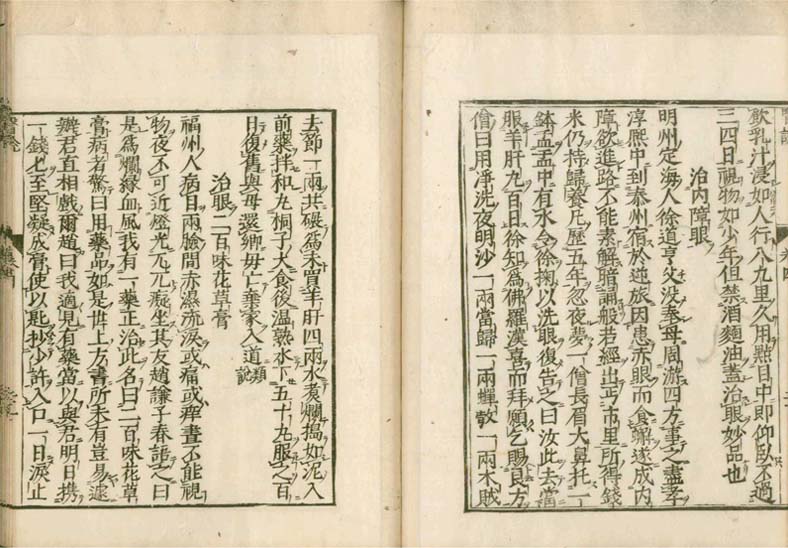 飲乳汁浸如人行八九里久用點目中即仰臥不過
三四日視物如少年但禁酒麵油蓋治眼妙品也
治內障眼
明州定海人徐道亨父沒奉母周游四方事之盡孝
淳熙中到泰州宿於逆旅因患赤眼而食蟹遂成內
障欲進路不能素解暗誦般若經出丐市里所得錢
米仍持歸養凡歷五年忽夜夢一僧長眉大鼻托一
鉢盂盂中有水令徐掬以洗眼復告之曰汝此去當
服羊肝丸百日徐知為佛羅漢喜而拜願乞賜良方
僧曰用淨洗夜明沙一兩當歸一兩蟬敦一兩木賊
去節一兩共碾爲末買羊肝四兩水煑爛搗如泥入
前藥拌和丸桐子大食後溫熟水下五十丸服之百
日復舊與母還鄉母亡棄家入道類說
治眼二百味花草膏
福州人病目兩臉間赤濕流淚或痛或痒晝不能視
物夜不可近燈光兀兀癡坐其友趙謙子春語之曰
是為爛緣血風我有一藥正治此名曰二百味花草
膏病者驚曰用藥品如是世上方書所未有豈易遽
辦君直相戲爾趙曰我適見有藥當以與君明日携
一錢匕至堅凝成膏使以匙抄少許入口一日淚止